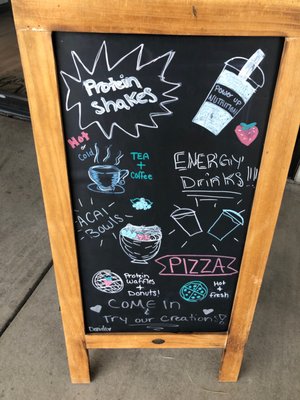 Protein
shakes
POWER UP
NUTRITION
Hot
&
Cold
TEA
+
Coffee
ENERGY
DRINKS!!!
ACAI
BOWLS
PIZZA
Protein
Waffles
&
Donuts!
Hot +
fresh
COME IN
&
Try our creations!